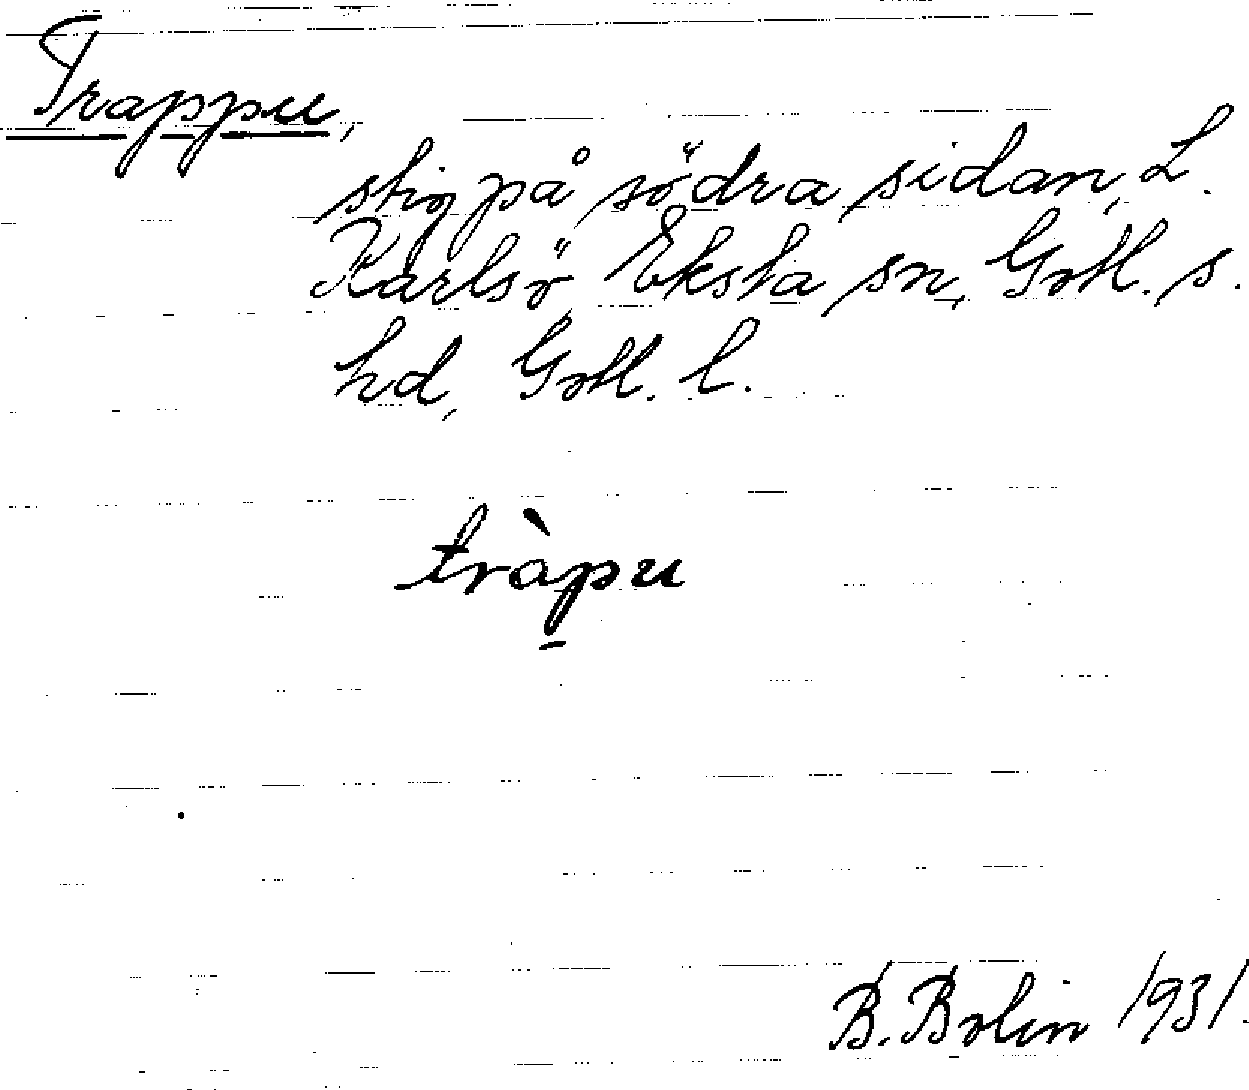 Trappu,
stig på södra sidan, L.
Karlsö, Eksta sn, Gotl. s.
hd, Gotl. l.
tràpu
B. Bolin 1931.